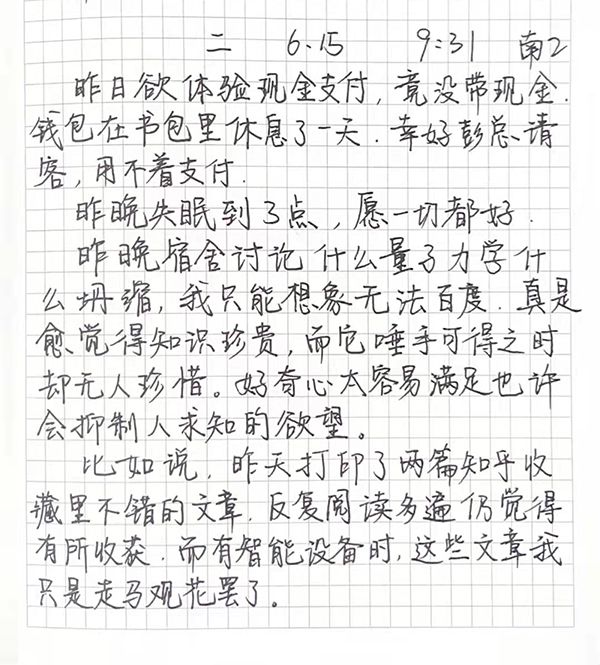 二 6.15 9:31 南2
昨日欲体验现金支付，竟没带现金.
钱包在书包里休息了一天.幸好彭总请
客，用不着支付.
昨晚失眠到3点，愿一切都好.
昨晚宿舍讨论什么量子力学什
么坍缩，我只能想象无法百度.真是
愈觉得知识珍贵，而它唾手可得之时
却无人珍惜。好奇心太容易满足也许
会抑制人求知的欲望。
比如说，昨天打印了两篇知乎收
藏里不错的文章，反复阅读多遍仍觉得
有所收获.而有智能设备时，这些文章我
只是走马观花罢了。